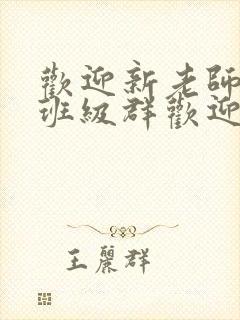 歡迎新老師
班級群歡迎
王麗群